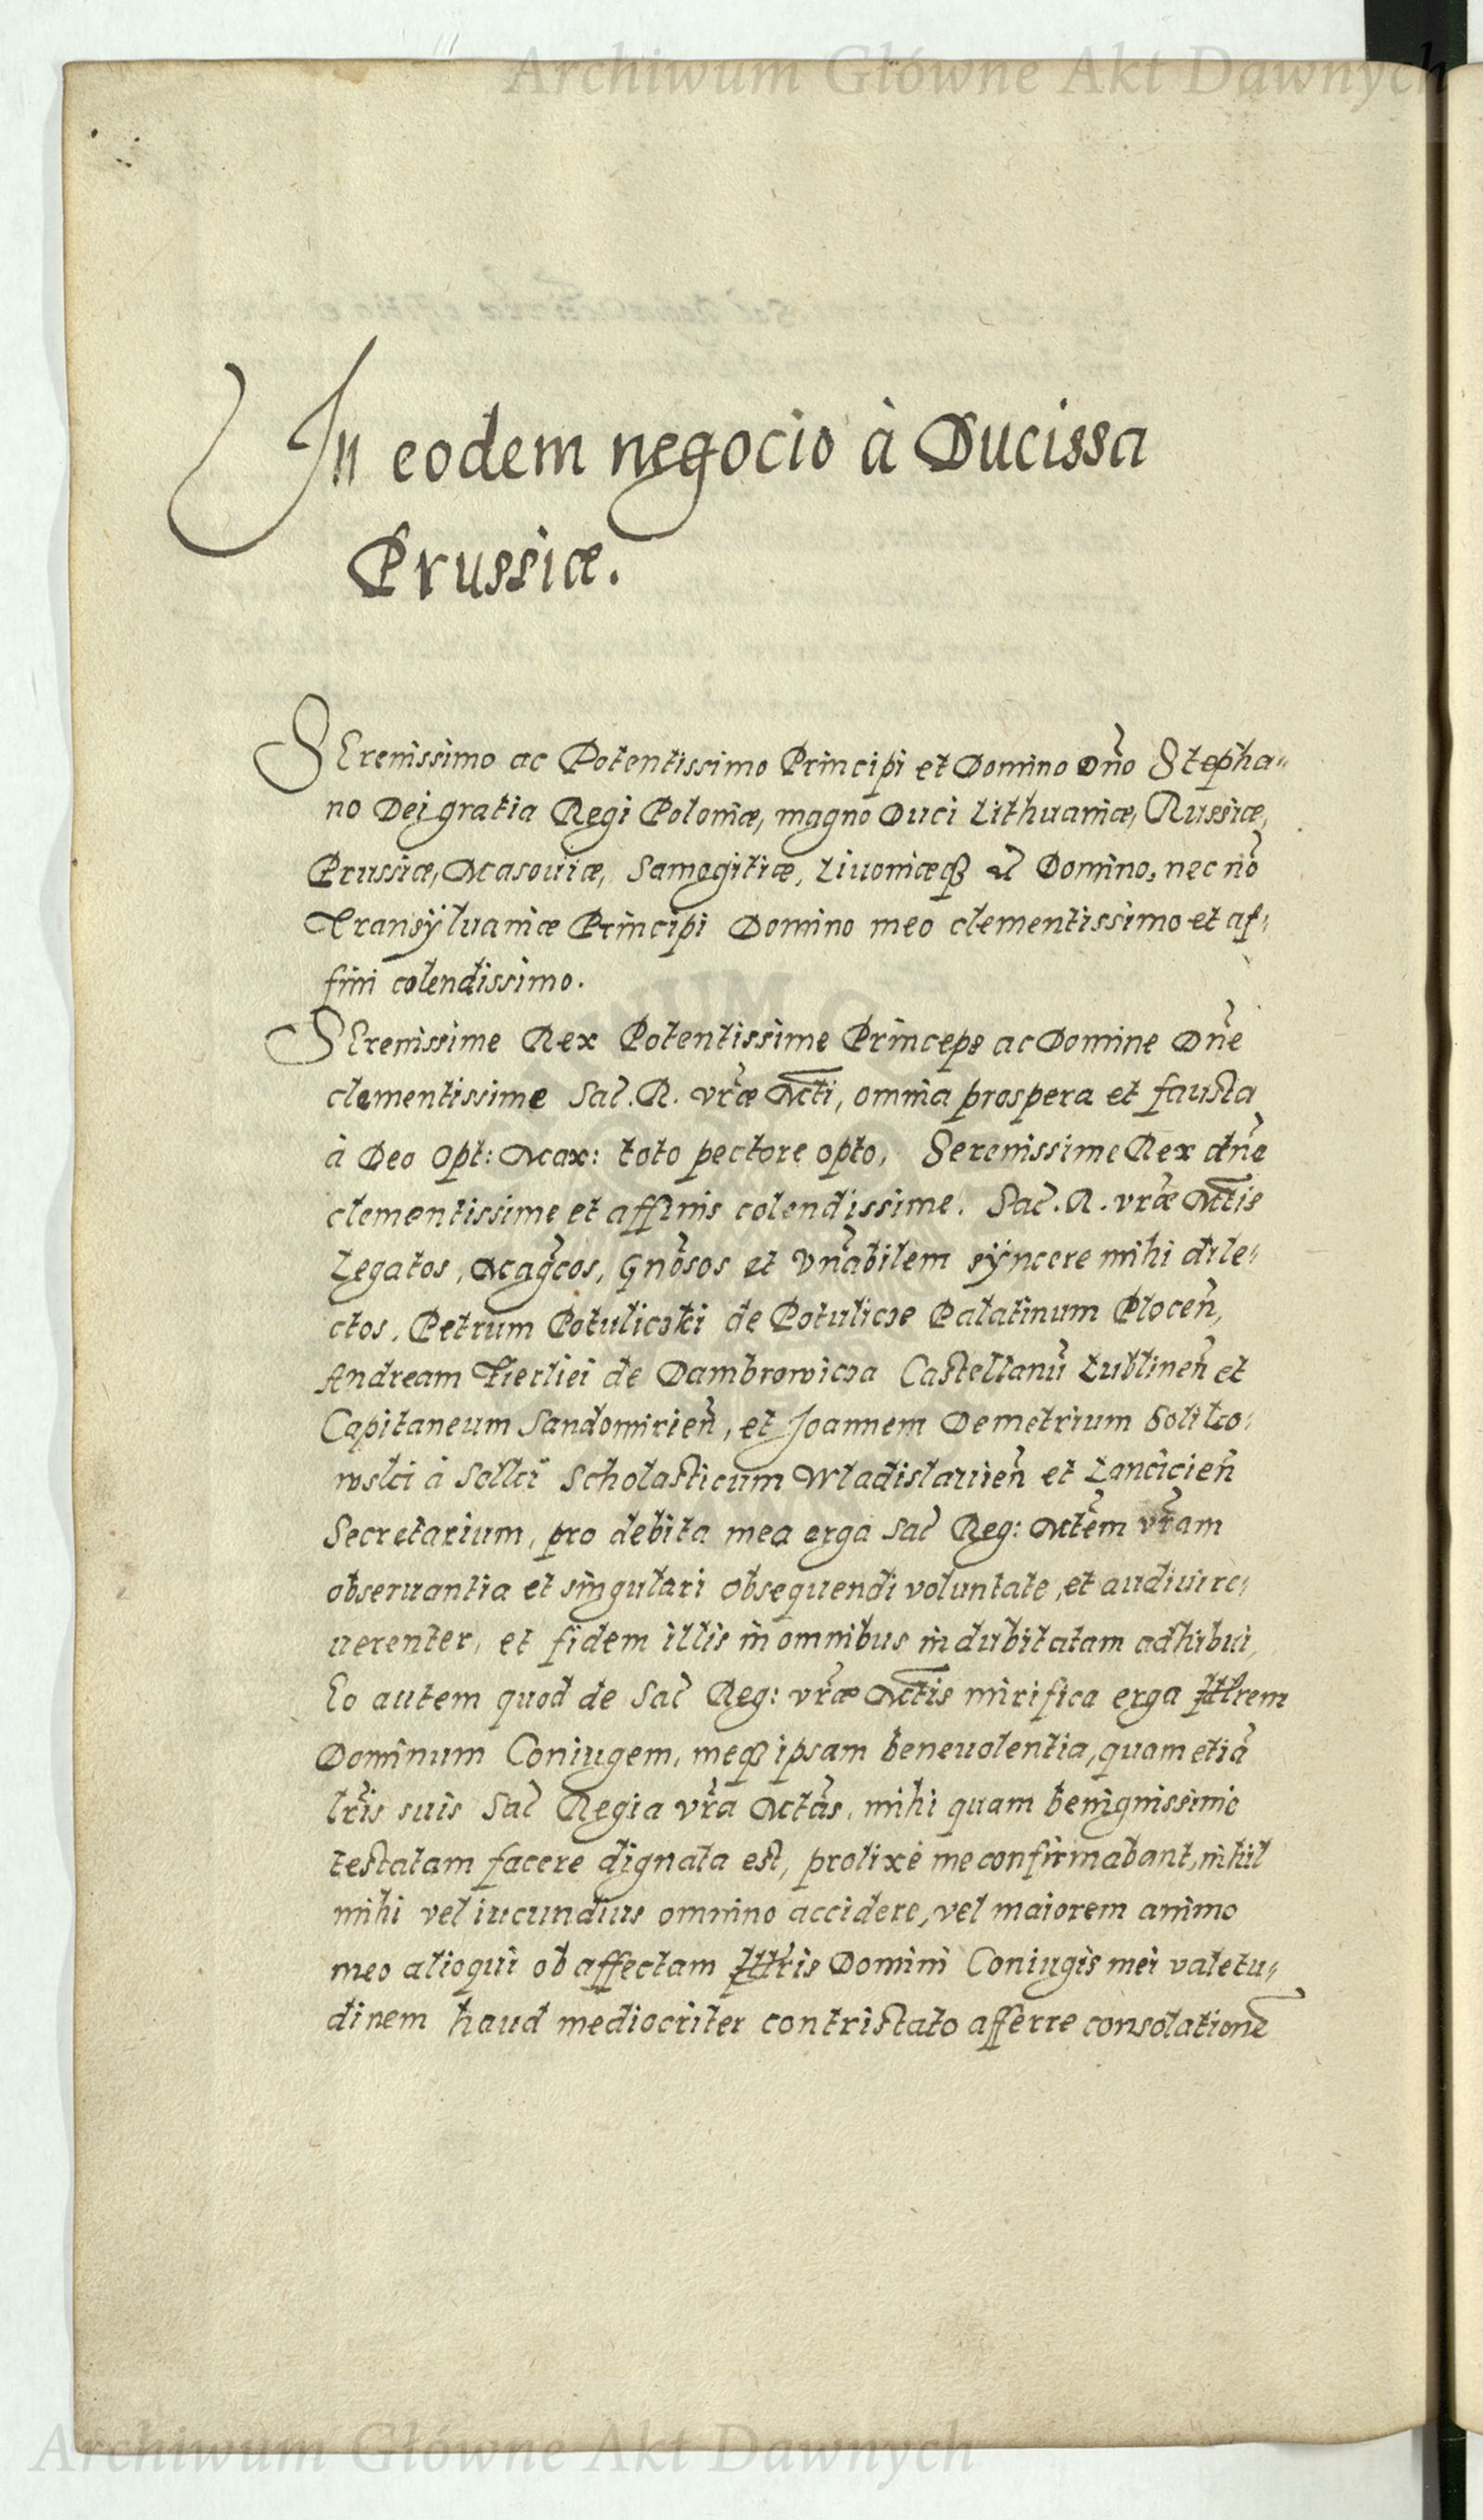 Archiwum Główne Akt Dawnych
In eodem negocio à Ducissa
Prussiæ.
SErenissimo ac Potentissimo Principi et Domino Dño Stepha-
no Dei gratia Regi Poloniæ, magno Duci Lithuaniæ, Russiæ,
Prussiæ, Masouiæ, Samogitiæ, Liuoniæq₃ Domino, nec nõ
Transÿluaniæ Principi Domino meo clementissimo et af-
fini colendissimo.
SErenissime Rex Potentissime Princeps ac Domine Dñe
clementissime Sac̃. R. vr̃æ Mc̃ti, omnia prospera et fausta
à Deo Opt: Max: toto pectore opto, Serenissime Rex dñe
clementissime et affinis colendissime. Sac̃. R. vr̃æ Mt̃is
Legatos, Mag̃cos, Gnõsos et Vnãbilem sÿncere mihi dile-
ctos, Petrum Potulicski de Potulicze Palatinum Plocen̄,
Andream Fierliei de Dambrowicza Castellanũ Lublinen̄ et
Capitaneum Sandomirien̄, et Joannem Demetrium Soliko-
wski à Solki Scholasticum Wladislauien̄ et Lancicien̄
Secretarium, pro debita mea erga Sac̃ Reg: Mt̃em vr̃am
obseruantia et singulari obsequendi voluntate, et audiui re-
uerenter, et fidem illis in omnibus indubitatam adhibui,
Eo autem quod de Sac̃ Reg: vr̃æ Mc̃tis mirifica erga Illrem
Dominum Coniugem, meq₃ ipsam beneuolentia, quam etiã
lr̃is suis Sac̃ Regia vr̃a Mt̃as, mihi quam benignissime
testatam facere dignata est, prolixè me confirmabant, nihil
mihi vel iucundius omnino accidere, vel maiorem animo
meo alioqui ob affectam Illris Domini Coniugis mei valetu-
dinem haud mediocriter contristato afferre consolationẽ
Archiwum Główne Akt Dawnych